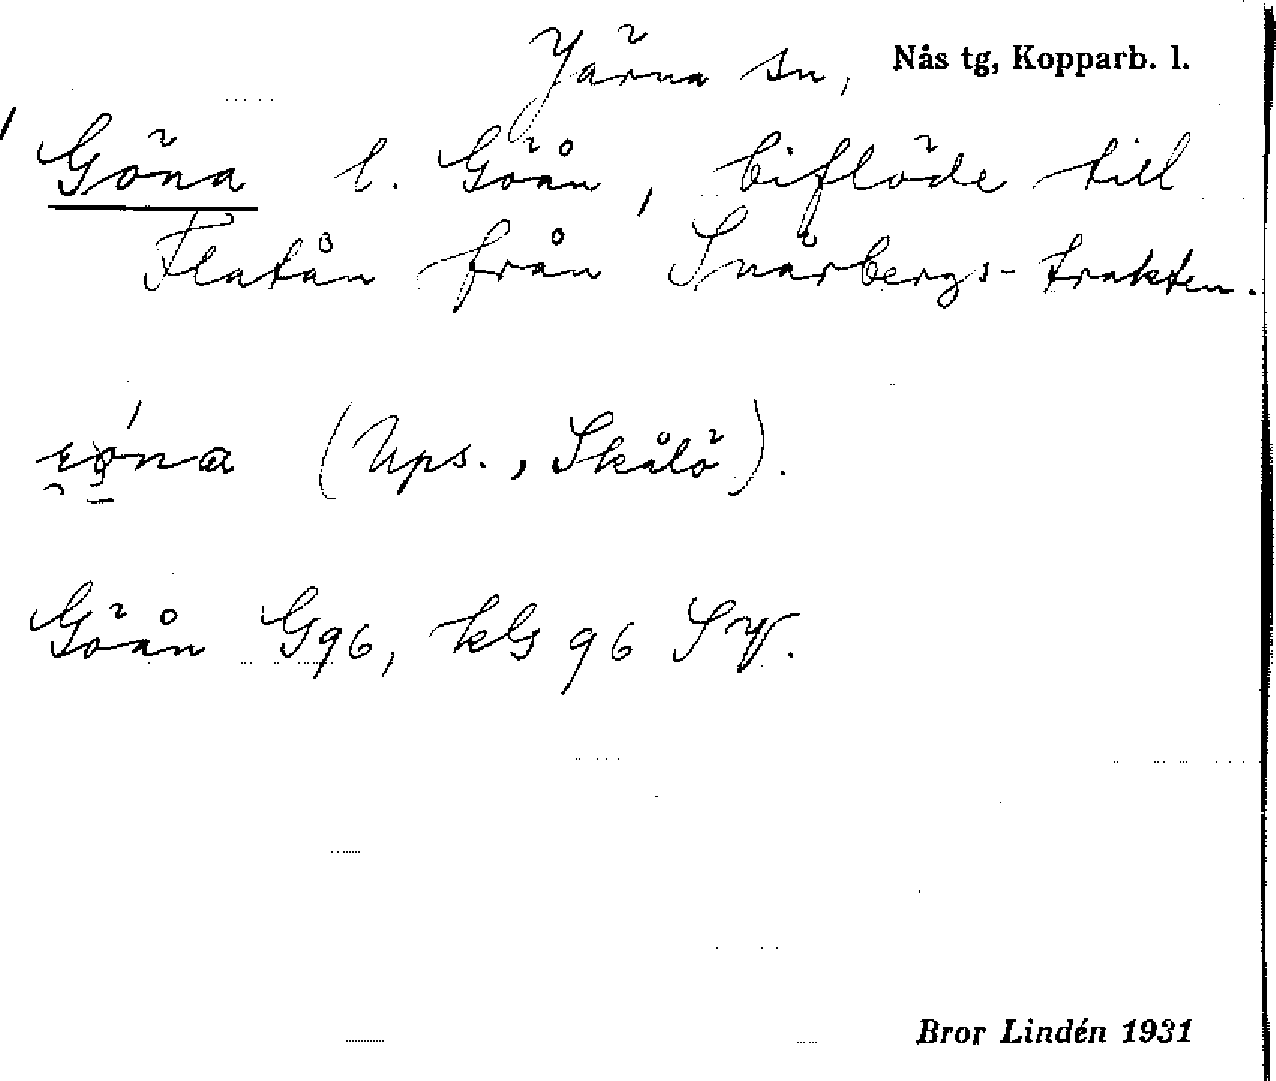 Järna sn, Nås tg, Kopparb. l.
Göna l. Göån, biflöde till
Flatån från Snårbergs-trakten.
(Ups., Skålö).
Göån G96, kG 96 SV.
Bror Lindén 1931